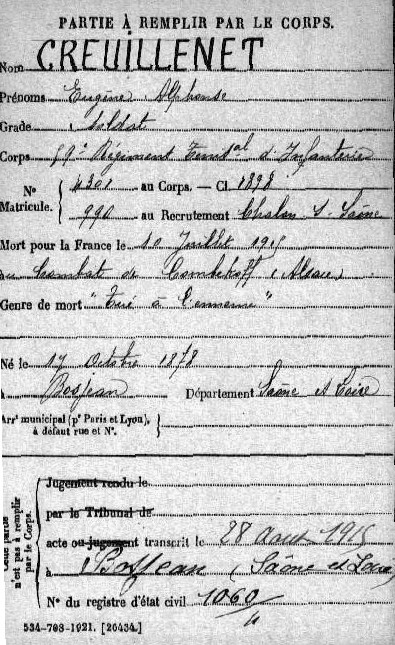 PARTIE À REMPLIR PAR LE CORPS.
Nom CREUILLENET
Prénoms Eugène Alphonse
Grade Soldat
Corps 59e Régiment Territal d'Infanterie
No Matricule. 4301 au Corps. — Cl. 1898
990 au Recrutement Chalon s. Saône
Mort pour la France le 10 Juillet 1915
au Combat de (Alsace)
Genre de mort "Tué à l'ennemi"
Né le 17 Octobre 1878
à Bosjean Département Saône et Loire
Arrt municipal (pr Paris et Lyon),
à défaut rue et No.
Cette partie n'est pas à remplir par le Corps.
Jugement rendu le
par le Tribunal de
acte ou jugement transcrit le 28 Aout 1915
à Bosjean (Saône et Loire)
No du registre d'état civil 1060/4
534-708-1921. [26434.]